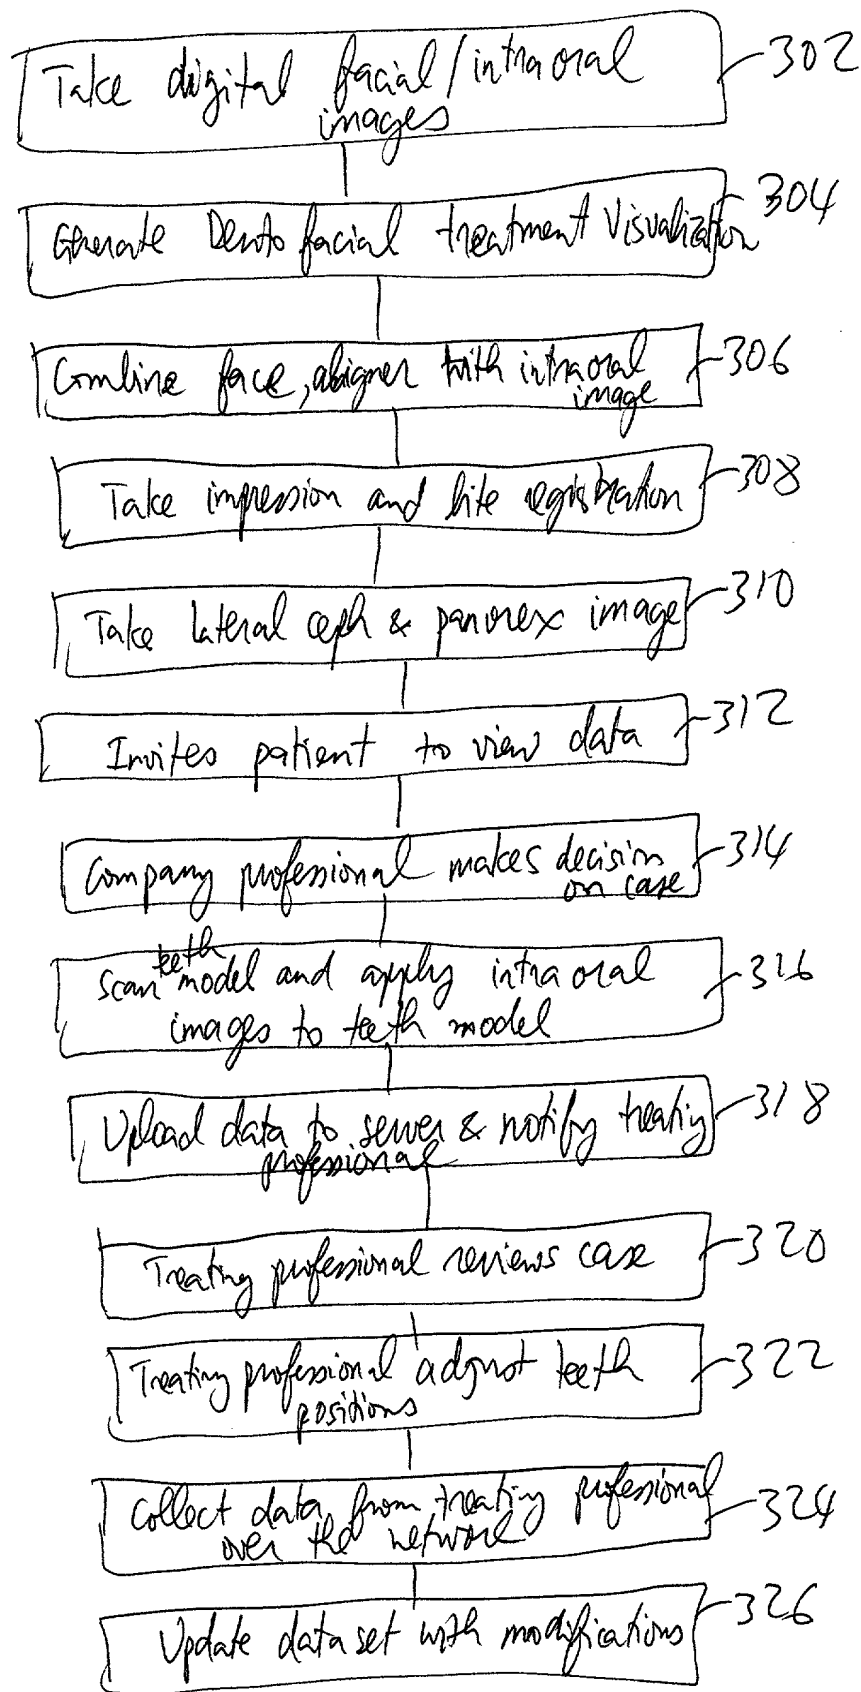 Take digital facial/intraoral 302
images
Generate Dentofacial treatment Visualization 304
Combine face, aligner with intraoral 306
image
Take impression and bite registration 308
Take Lateral ceph & panorex image 310
Invites patient to view data 312
Company professional makes decision 314
on case
teeth
Scan model and apply intraoral 316
images to teeth model
Upload data to server & notify treating 318
professional
Treating professional reviews case 320
Treating professional adjust teeth 322
positions
Collect data from treating professional 324
over the network
Update data set with modifications 326